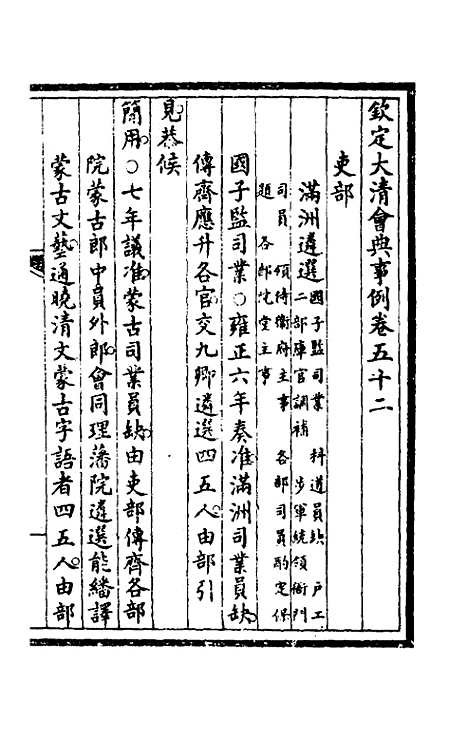 欽定大清會典事例卷五十二
吏部
滿洲遴選國子監司業 科道員缺 戶工
二部庫官調補 步軍統領衙門
司員 領侍衛府主事 各部司員酌定保
題 各部院堂主事
國子監司業○雍正六年奏准滿洲司業員缺
傳齊應升各官交九卿遴選四五人由部引
見恭候
簡用○七年議准蒙古司業員缺由吏部傳齊各部
院蒙古郎中員外郎會同理藩院遴選能繙譯
蒙古文藝通曉清文蒙古字語者四五人由部